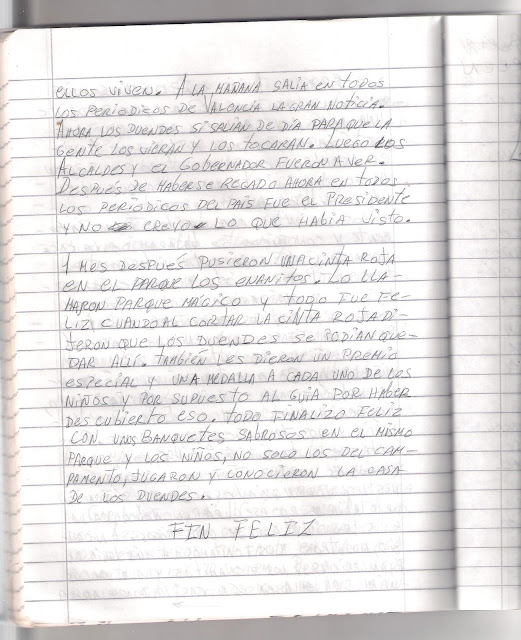 ellos viven. A la mañana salia en todos
los periodicos de Valencia la gran noticia.
Ahora los duendes si salian de dia para que la
gente los vieran y los tocaran. Luego los
Alcaldes y el Gobernador fueron a ver.
Después de haberse regado ahora en todos
los periodicos del país fue el Presidente
y no creyo lo que habia visto.
1 mes después pusieron una cinta roja
en el parque los enanitos. Lo lla-
maron parque mágico y todo fue fe-
liz cuando al cortar la cinta roja di-
jeron que los duendes se podian que-
dar allí. También les dieron un premio
especial y una medalla a cada uno de los
niños y por supuesto al guia por haber
descubierto eso. Todo finalizo feliz
con unos banquetes sabrosos en el mismo
parque y los niños, no solo los del cam-
pamento, jugaron y conocieron la casa
de los duendes.
FIN FELIZ